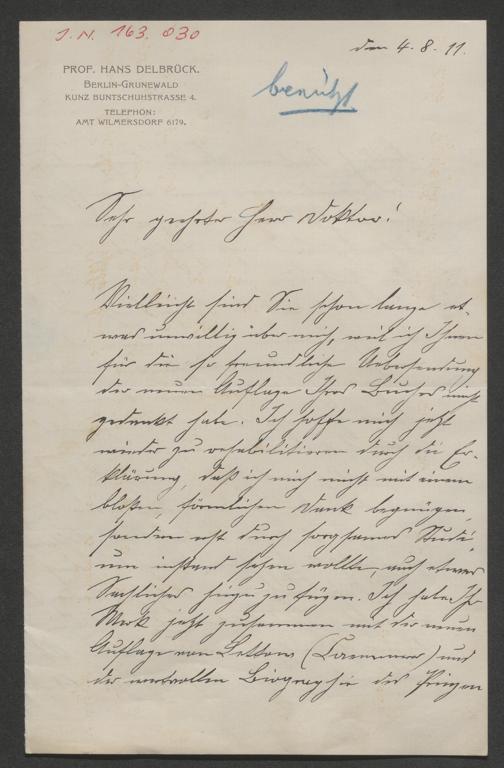 J.N. 163.030
den 4.8.11.
PROF. HANS DELBRÜCK.
BERLIN-GRUNEWALD
KUNZ BUNTSCHUHSTRASSE 4.
TELEPHON:
AMT WILMERSDORF 6179.
benützt
Sehr geehrter Herr Doktor!
Vielleicht sind Sie schon lange et-
was unwillig über mich, weil ich Ihnen
für die so freundliche Uebersendung
der neuen Auflage Ihres Buches nicht
gedankt habe. Ich hoffe mich jetzt
wieder zu rehabilitieren durch die Er-
klärung, daß ich mich nicht mit einem
bloßen, förmlichen Dank begnügen,
sondern erst durch sorgsames Studi-
um instand sehen wollte, auch etwas
Sachliches hinzuzufügen. Ich habe Ihr
Werk jetzt zusammen mit der neuen
Auflage von Lettow (Caemmerer) und
der wertvollen Biographie des Prinzen